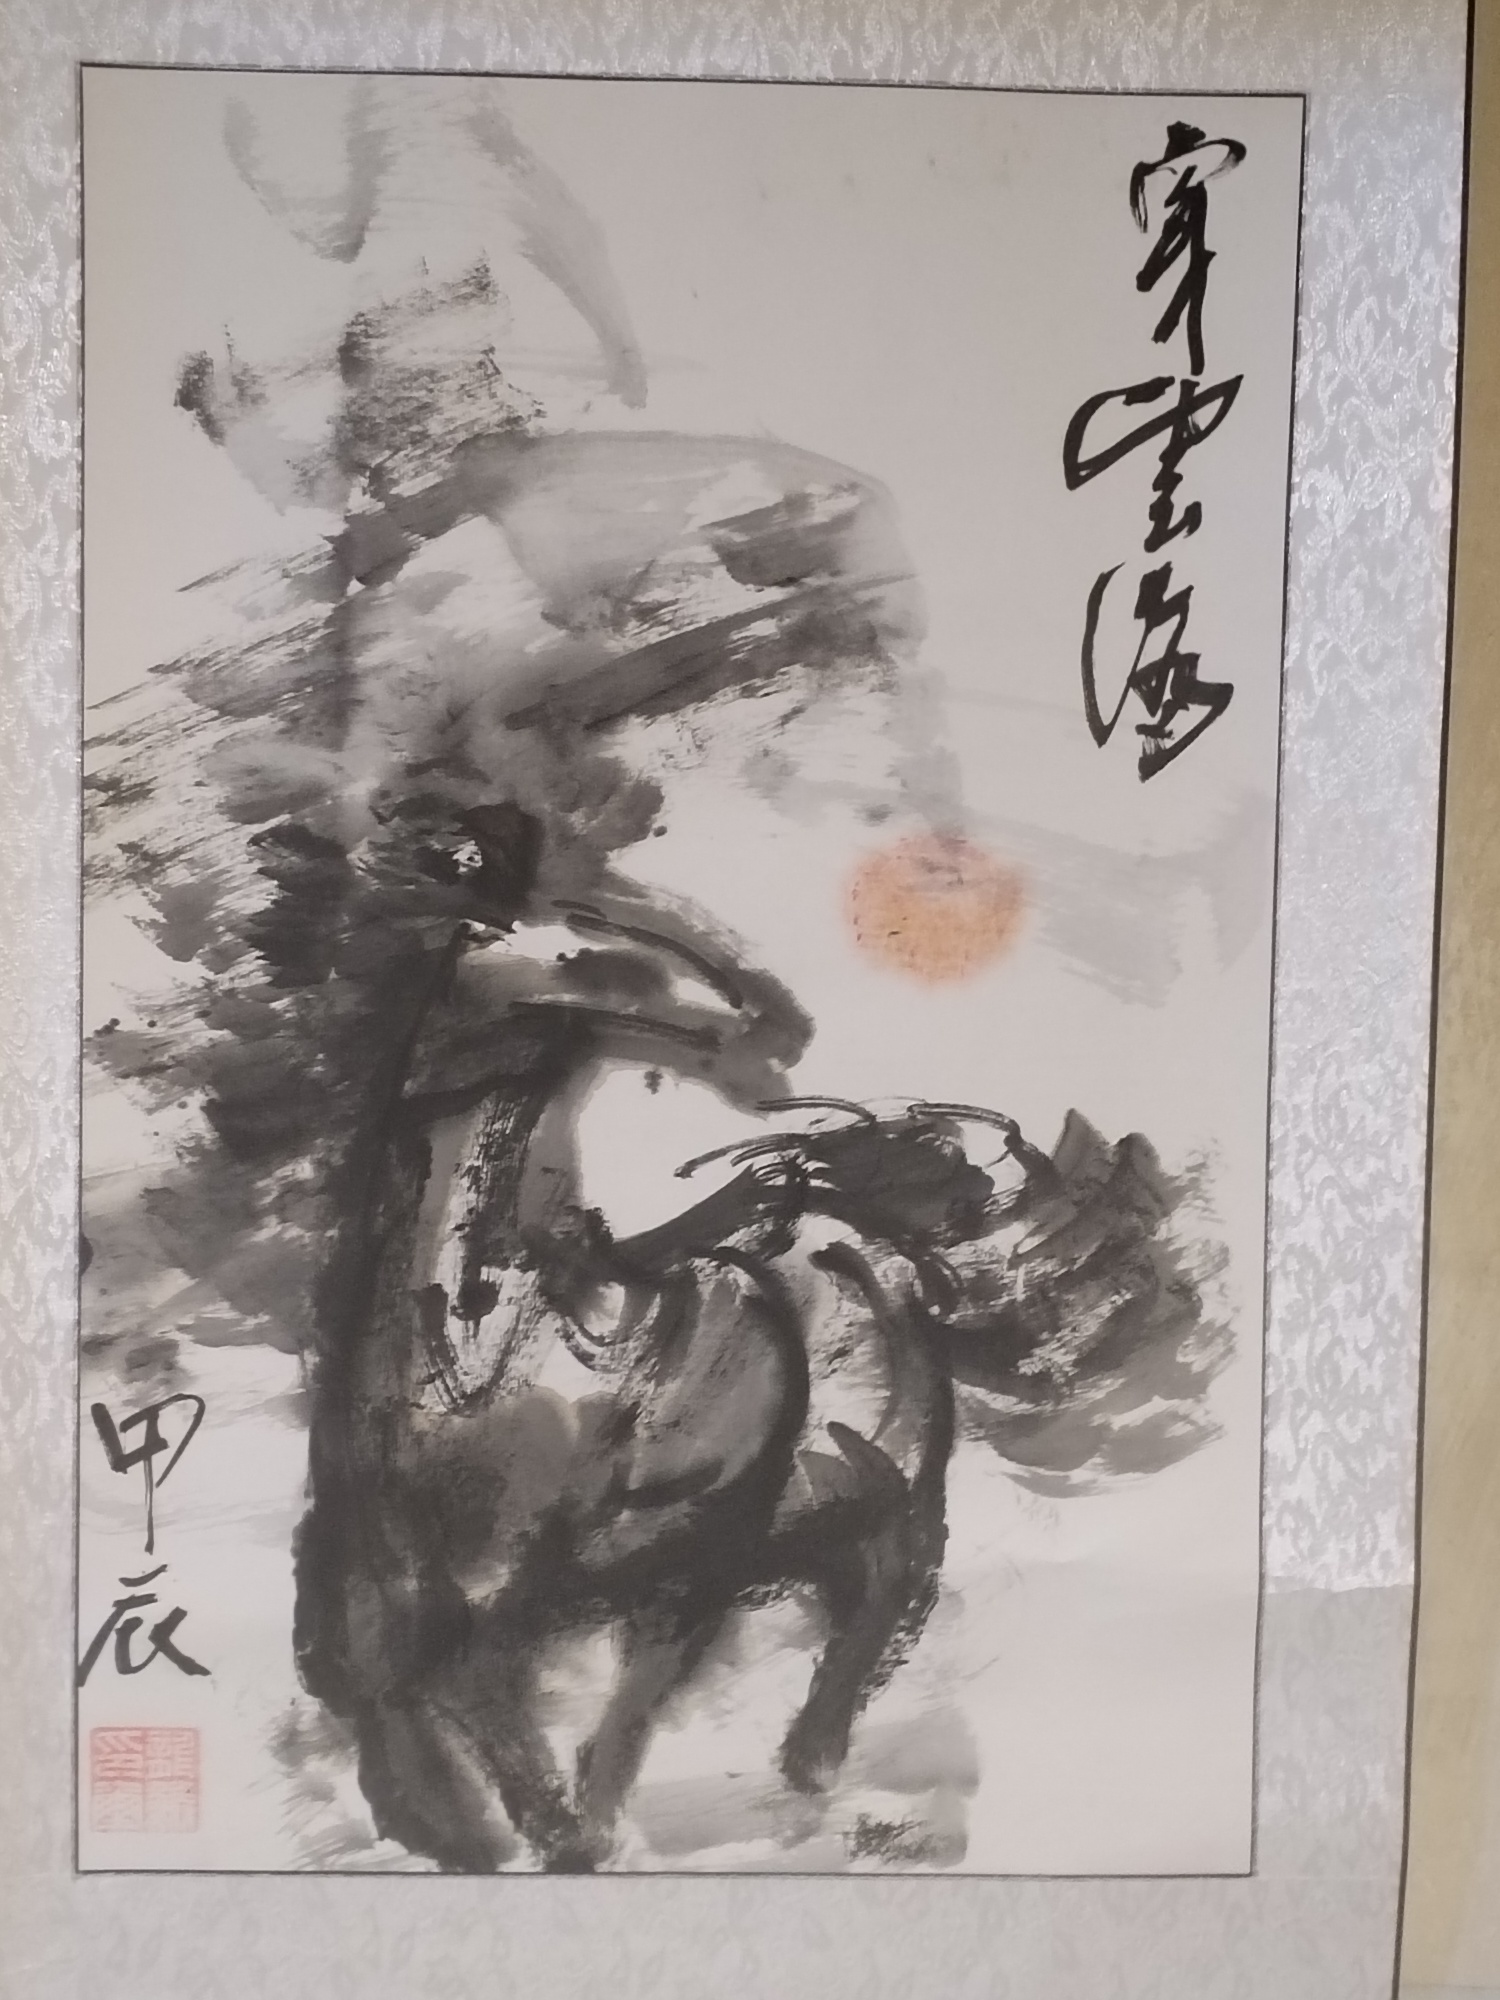 穿雲海
甲辰